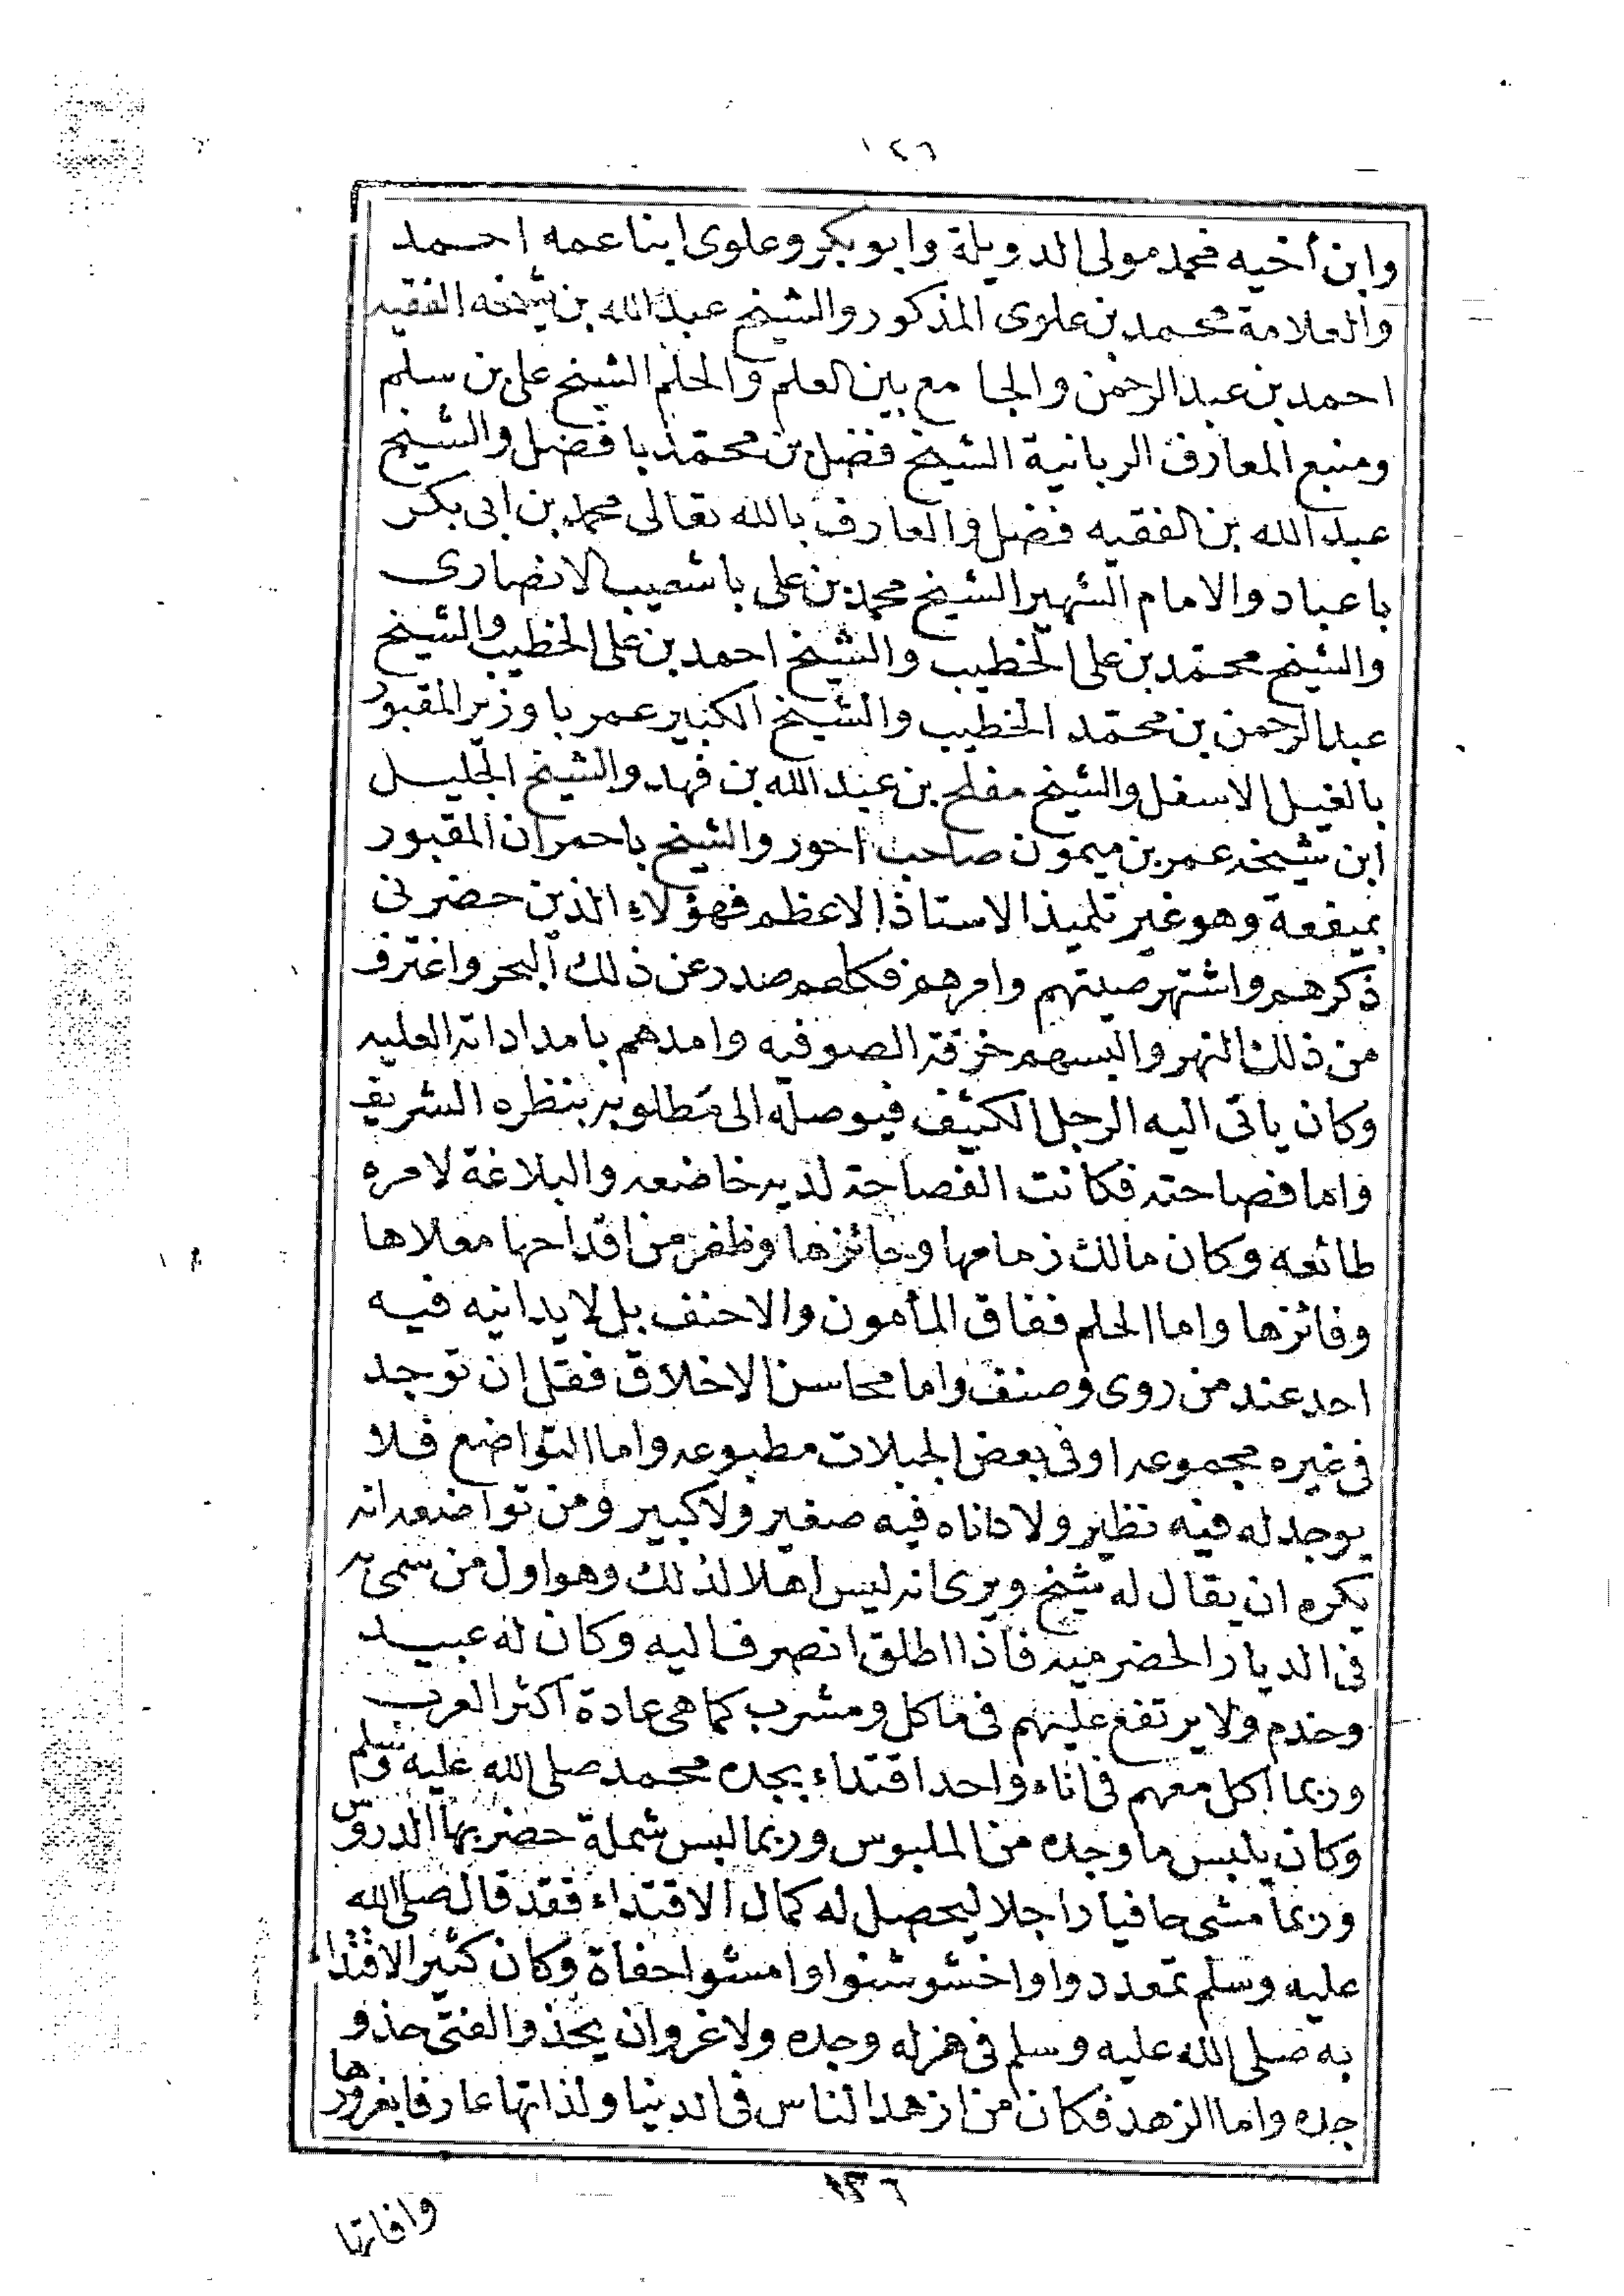 ١٤٦
وابن أخيه محمد مولى الدويلة وابو بكر وعلوى ابنا عمه احمد
والعلامة محمد بن علوى المذكور والشيخ عبد الله بن شيخه الفقيه
احمد بن عبد الرحمن والجامع بين العلم والحلم الشيخ على بن سلم
ومنبع المعارف الربانية الشيخ فضل بن محمد با فضل والشيخ
عبد الله بن الفقيه فضل والعارف بالله تعالى محمد بن ابى بكر
با عباد والامام الشهير الشيخ محمد بن على با شعيب الانصارى
والشيخ محمد بن على الخطيب والشيخ احمد بن على الخطيب والشيخ
عبد الرحمن بن محمد الخطيب والشيخ الكبير عمر با وزير المقبور
بالغيل الاسفل والشيخ مفلح بن عبد الله بن فهد والشيخ الجليل
ابن شيخه عمر بن ميمون صاحب احور والشيخ با حمران المقبور
بميفعة وهو غير تلميذ الاستاذ الاعظم فهؤلاء الذين حضرنى
ذكرهم واشتهر صيتهم وامرهم فكلهم صدر عن ذلك البحر واغترف
من ذلك النهر والبسهم خرقة الصوفيه وامدهم بامداداته العليه
وكان ياتى اليه الرجل الكثيف فيوصله الى مطلوبه بنظره الشريف
واما فصاحته فكانت الفصاحة لديه خاضعه والبلاغة لامره
طائعه وكان مالك زمامها وحائزها وظفر من اقداحها معلاها
وفائزها واما الحلم ففاق المأمون والاحنف بل لا يدانيه فيه
احد عند من روى وصنف واما محاسن الاخلاق فقل ان توجد
فى غيره مجموعه او فى بعض الجبلات مطبوعه واما التواضع فلا
يوجد له فيه نظير ولا داناه فيه صغير ولا كبير ومن تواضعه انه
يكره ان يقال له شيخ ويرى انه ليس اهلا لذلك وهو اول من سمى به
فى الديار الحضرميه فاذا اطلق انصرف اليه وكان له عبيد
وخدم ولا يرتفع عليهم فى ماكل ومشرب كما هى عادة اكثر العرب
وربما اكل معهم فى اناء واحد اقتداء بجده محمد صلى الله عليه وسلم
وكان يلبس ما وجده من الملبوس وربما لبس شملة حضر بها الدروس
وربما مشى حافيا راجلا ليحصل له كمال الاقتداء فقد قال صلى الله
عليه وسلم تمعددوا واخشوشنوا وامشوا حفاة وكان كثير الاقتداء
به صلى الله عليه وسلم فى هزله وجده ولا غرو ان يحذو الفتى حذو
جده واما الزهد فكان من ازهد الناس فى الدنيا ولذاتها عارفا بغرورها
١٣٦
وافاتها